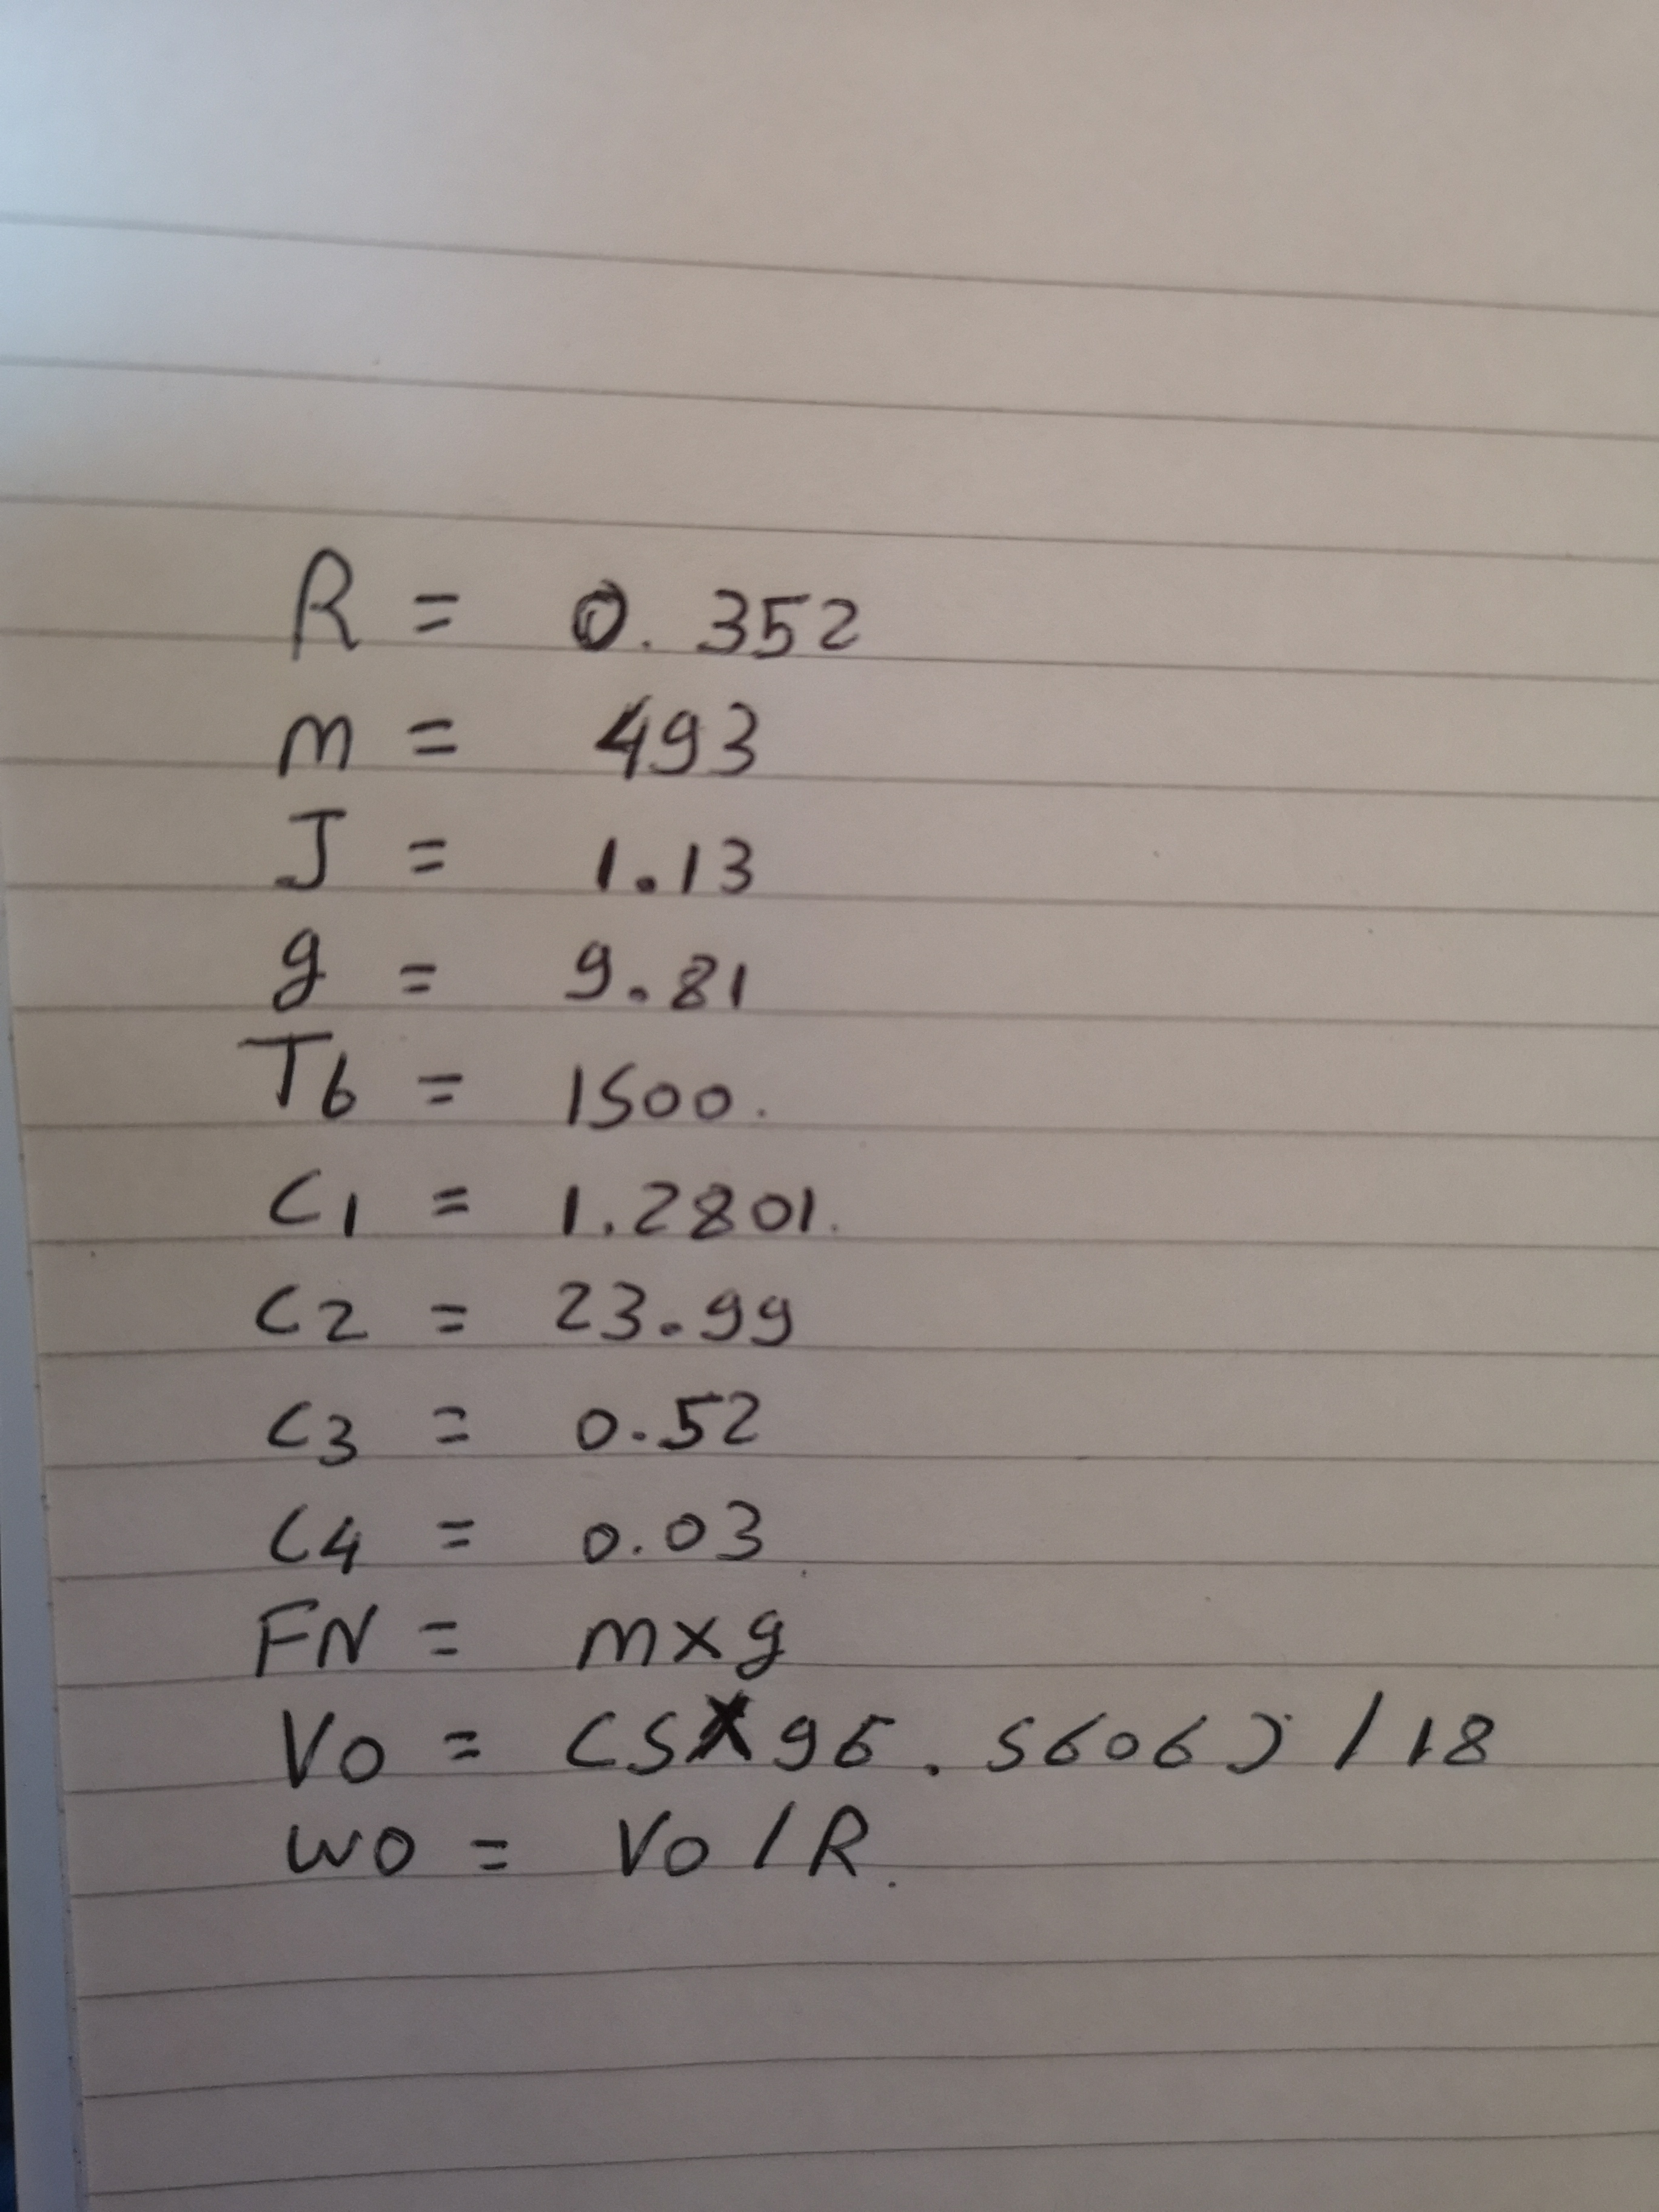 R = 0.352
m = 493
J = 1.13
g = 9.81
Tb = 1500.
C1 = 1.2801.
C2 = 23.99
C3 = 0.52
C4 = 0.03
FN = m×g
V0 = (5×96.5606)/18
w0 = V0/R.